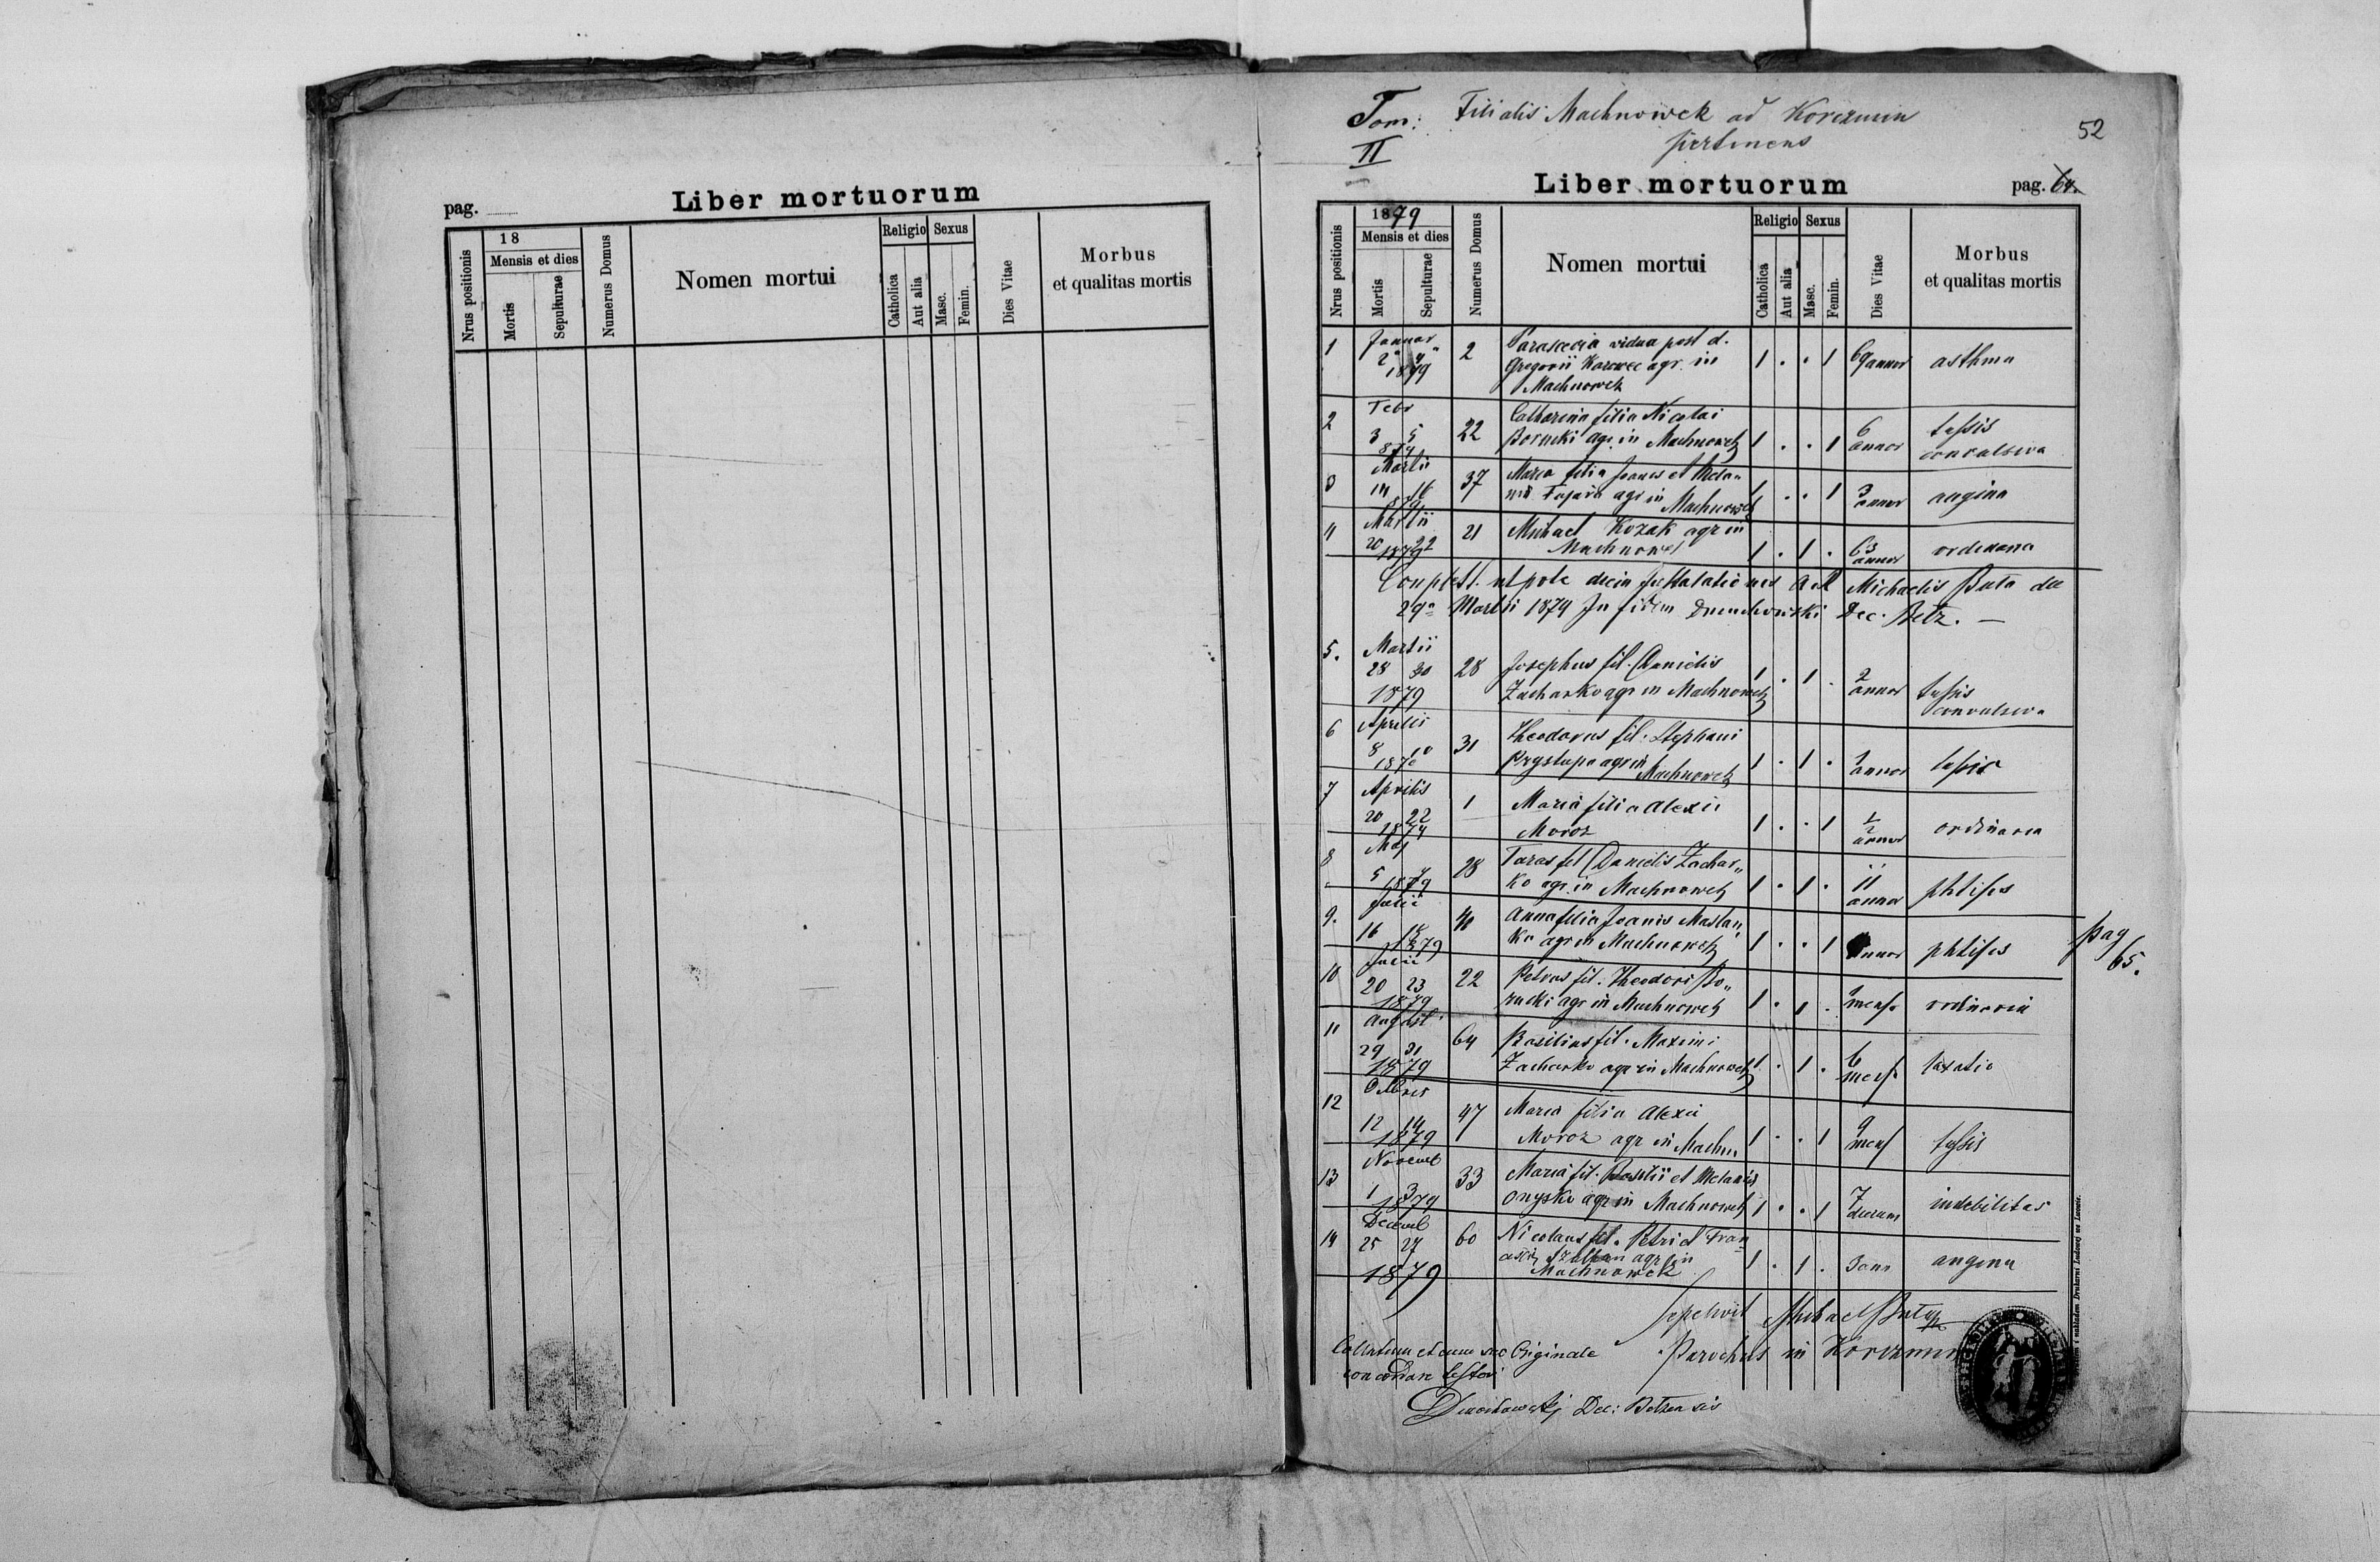 pag.
Liber mortuorum
Nrus positionis
18
Mensis et dies
Mortis
Sepulturae
Numerus Domus
Nomen mortui
Religio
Catholica
Aut alia
Sexus
Masc.
Femin.
Dies Vitae
Morbus
et qualitas mortis
Tom: II
Filialis Machnowek ad Korczmin
pertinens
52
Liber mortuorum
pag. 64.
Nrus positionis
1879
Mensis et dies
Mortis
Sepulturae
Numerus Domus
Nomen mortui
Religio
Catholica
Aut alia
Sexus
Masc.
Femin.
Dies Vitae
Morbus
et qualitas mortis
1 Januar 2 4 1879 2 Parascevia vidua post d. Gregorii agr. in Machnowek 1 . . 1 69 annor asthma
2 Febr 3 5 22 Catharina filia Nicolai agr. in Machnowek 1 . . 1 6 annor tussis convulsiva
3 Martii 14 16 37 Maria filia Joanis et Melanii agr in Machnowek 1 . . 1 3 annor angina
4 Martii 20 22 1879 21 Michael Kozak agr in Machnowek 1 . 1 . 63 annor ordinaria
ut pote decin Michaelis Buta
29a Martii 1879 In fidem Dec. Betz. —
5. Martii 28 30 1879 28 Josephus fil. Danielis Zacharko agr in Machnowek 1 . 1 . 2 annor tussis convulsiva
6 Aprilis 8 10 31 Theodorus fil. Stephani Prystupa agr in Machnowek 1 . 1 . annor tussis
7 Aprilis 20 22 1879 1 Maria filia Alexii Moroz 1 . . 1 1/2 annor ordinaria
8 Maj 5 7 1879 28 Taras fil Danielis Zachar„ ko agr. in Machnowek 1 . 1 . 11 annor phtisis
9. Julii 16 18 1879 Anna filia Joanis Maslan„ ka agr in Machnowek 1 . . 1 annor phtisis
pag 65.
10 Julii 20 23 1879 22 Petrus fil. Theodori agr in Machnowek 1 . 1 . mens ordinaria
11 August 29 31 1879 64 Basilius fil. Maximi Zacharko agr in Machnowek 1 . 1 . 6 mens
12 Octbris 12 14 1879 47 Maria filia Alexii Moroz agr in Machn„ 1 . . 1 9 mens tussis
13 Novemb 1 3 1879 33 Maria fil. Basilii et Melaniis Onysko agr in Machnowek 1 . . 1 7 dierum indebilitas
14 Decemb 25 27 1879 60 Nicolaus fil. Petri et agr in Machnowek 1 . 1 . 3 ann angina
Sepelivit Michael Buta
Parochus in Korczmin
Collatum et cum suo Originale
concordare testor
Dec: Betzensis